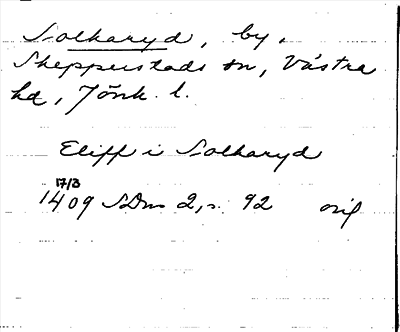 Solharyd, by,
Skepperstads sn, Västra
hd, Jönk. l.
Eliff i Solharyd
17/3
1409 SDns 2, s. 92 orig